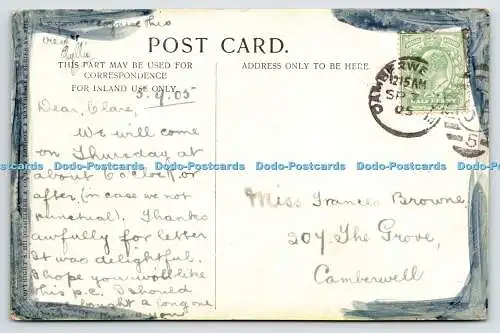 POST CARD.
THIS PART MAY BE USED FOR
CORRESPONDENCE
FOR INLAND USE ONLY.
ADDRESS ONLY TO BE HERE.
5.9.05
Dear Clare,
We will come
on Thursday at
about 6 o'clock or
after, (in case we not
punctual). Thanks
awfully for letter
It was delightful.
I hope you will like
this p.c. I should
bought a long one
you
this
Miss Frances Browne
207. The Grove,
Camberwell
CAMBERWE
12.15AM
SP
05
HALFPENNY
Dodo-Postcards Dodo-Postcards Dodo-Postcards Dodo-Postcards Dodo-Postcards